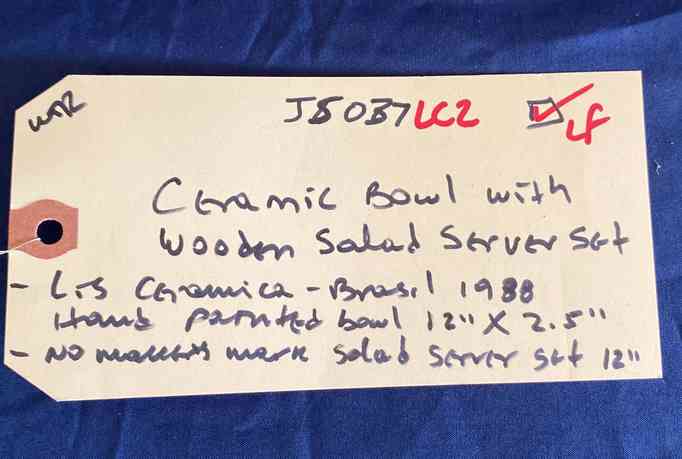 WAR
JB037LC2 LF
Ceramic Bowl with
Wooden Salad Server Set
- LiS Ceramica - Brasil 1988
Hand Painted bowl 12" X 2.5"
- No makers mark Salad Server Set 12"